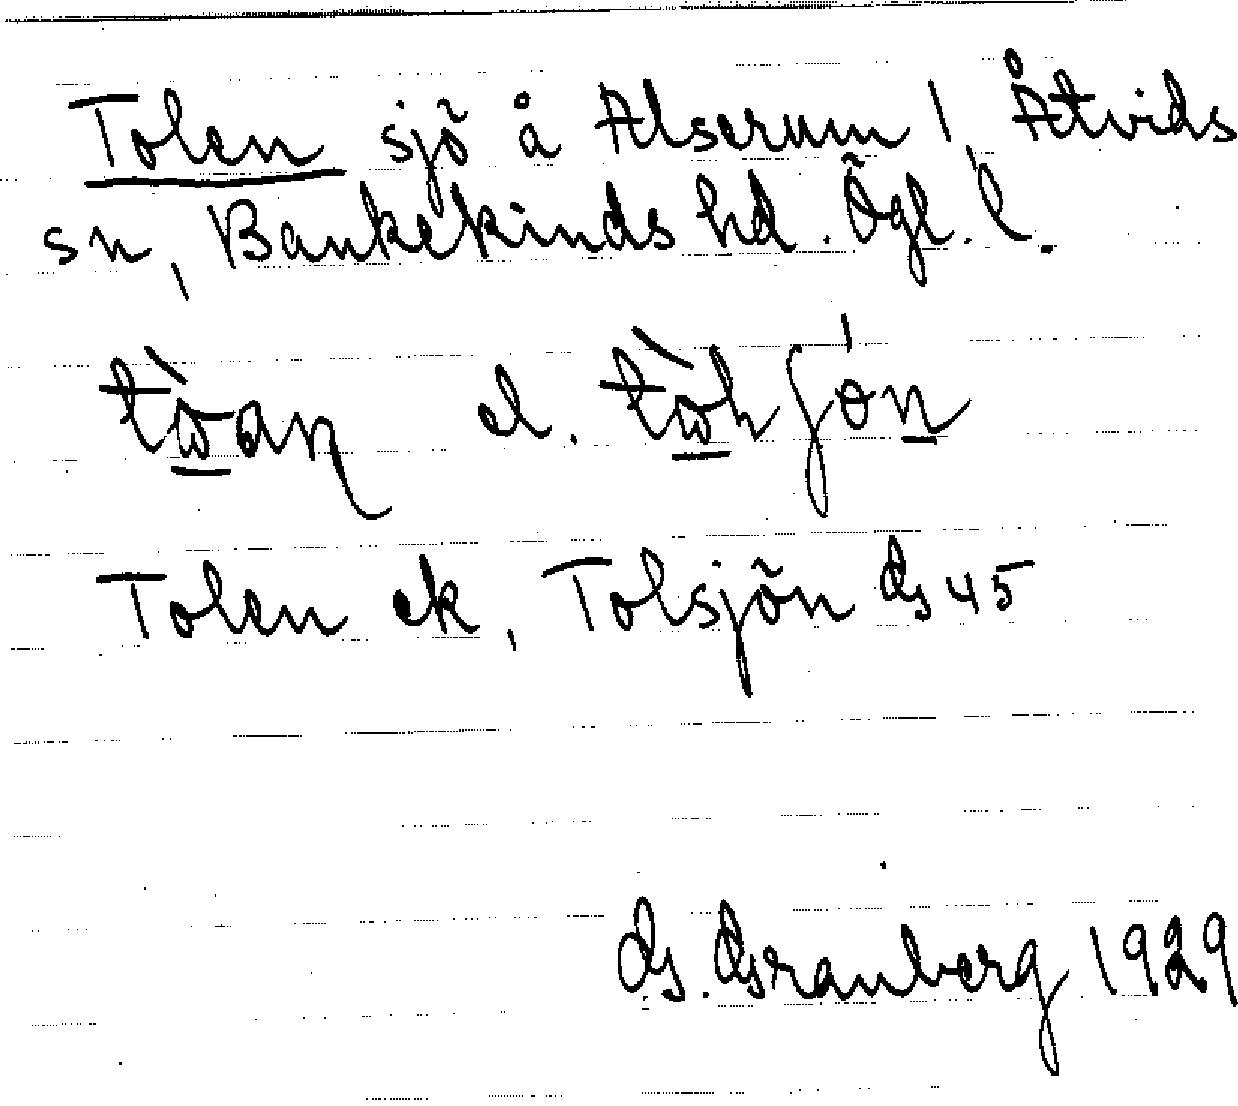 Tolen sjö å Alserum, Åtvids
sn, Bankekinds hd. Ögl. l.
Tolen ek, Tolsjön Gs 45
G. Granberg 1929